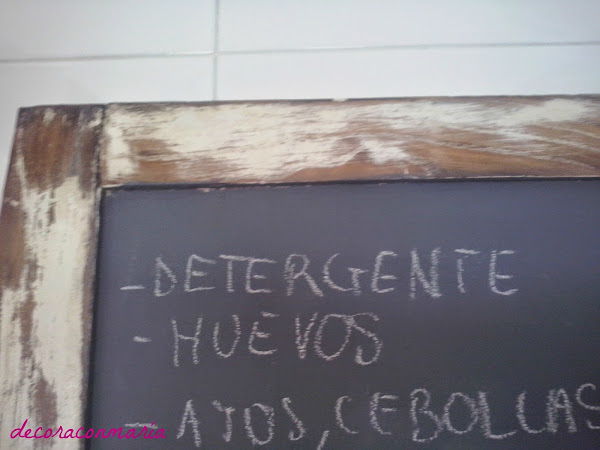 - DETERGENTE
- HUEVOS
- AJOS, CEBOLLAS
decoraconmaria